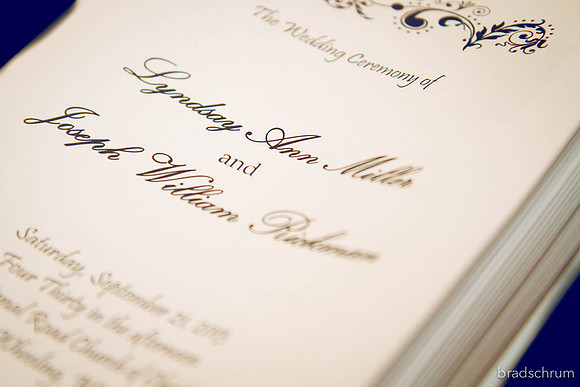 The Wedding Ceremony of
Lyndsay Ann Miller
and
Joseph William
Saturday, September 21,
Four Thirty in the afternoon
Church of
bradschrum